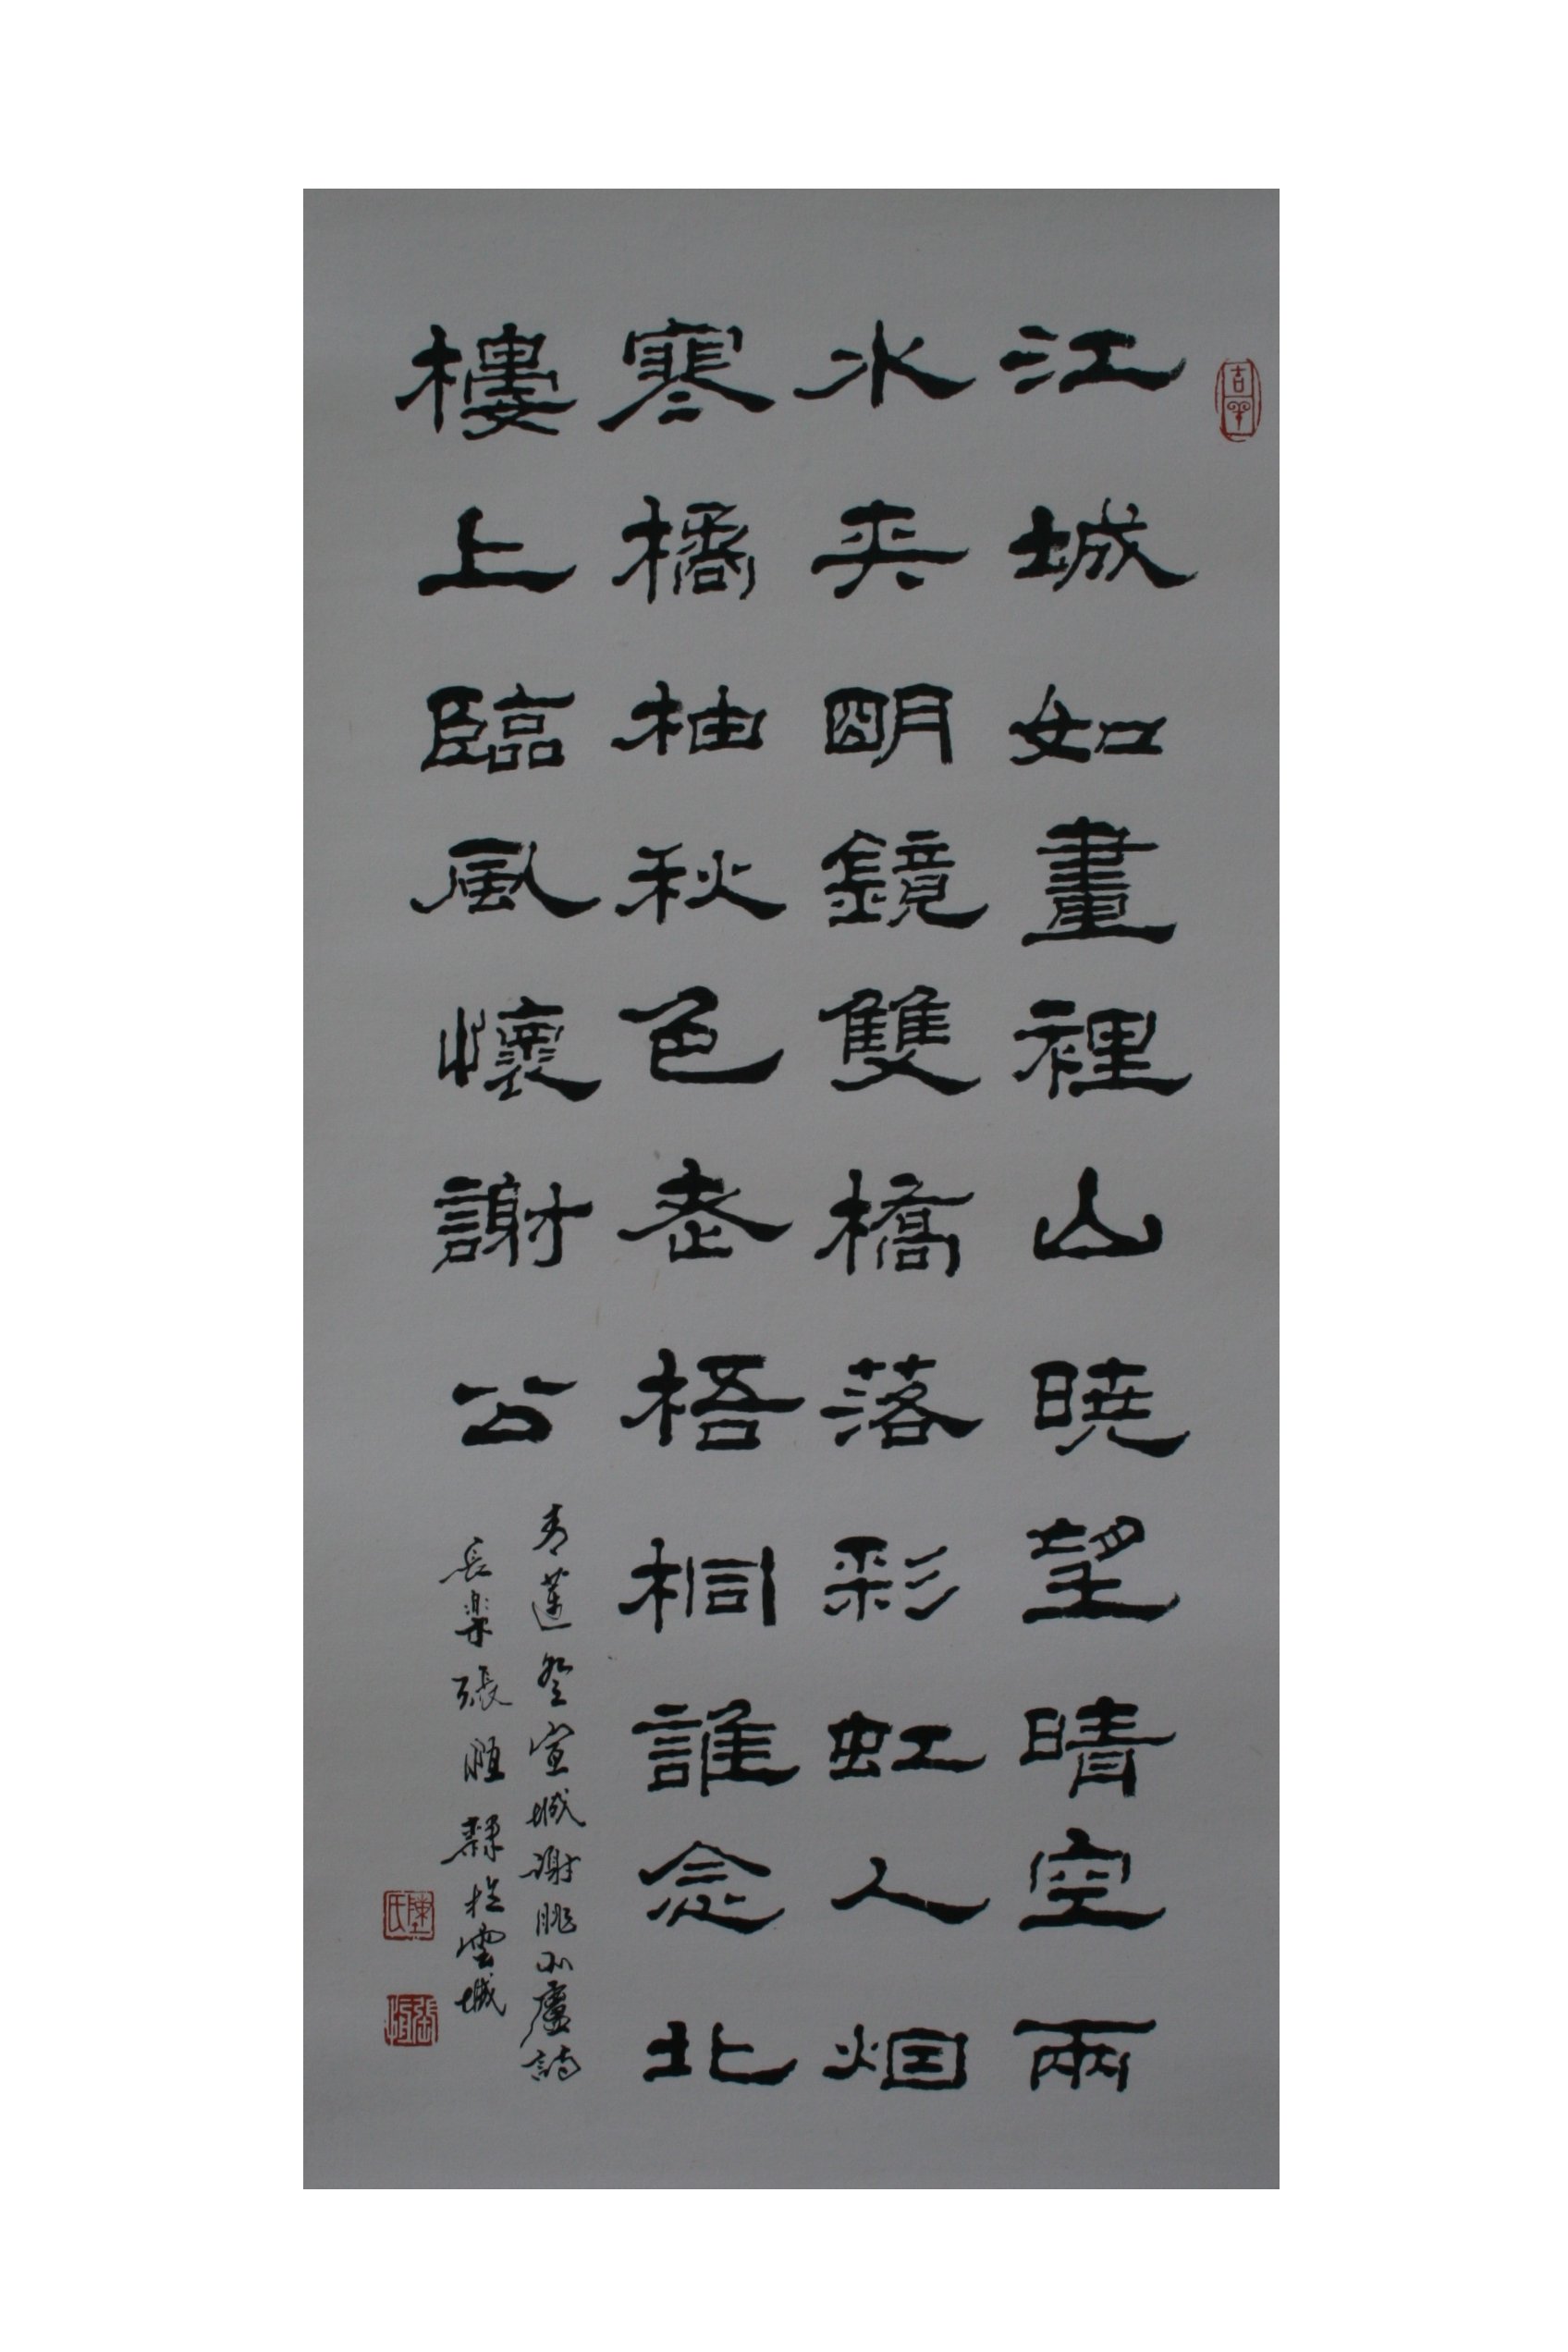 江城如畫裡山曉望晴空兩
水夾明鏡雙橋落彩虹人烟
寒橘柚秋色老梧桐誰念北
樓上臨風懷謝公
青蓮登宣城謝朓北廬詩
長樂張恒隸於雲城
吉羊
張恒